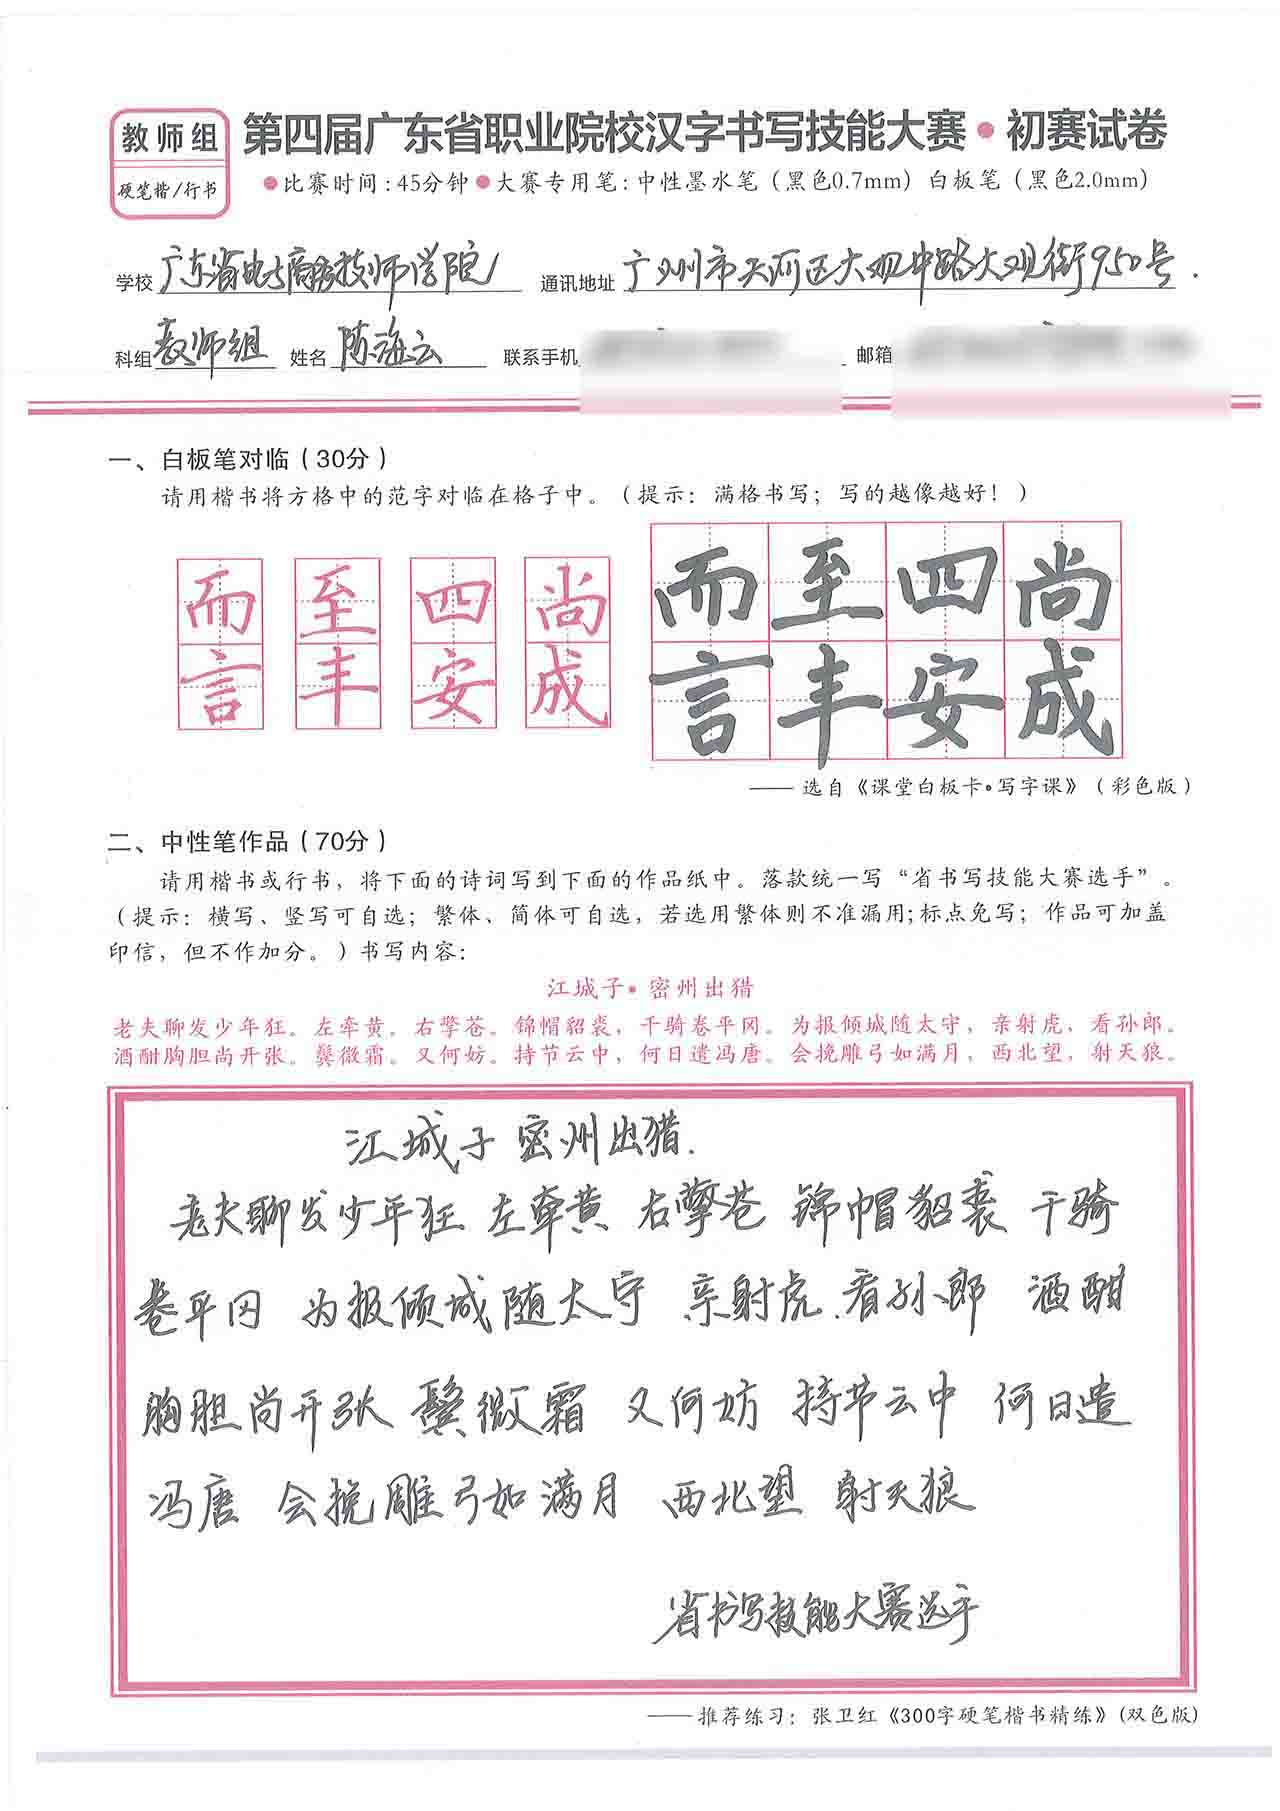 教师组
硬笔楷/行书
第四届广东省职业院校汉字书写技能大赛•初赛试卷
●比赛时间:45分钟●大赛专用笔:中性墨水笔（黑色0.7mm）白板笔（黑色2.0mm）
学校 广东省电子商务技师学院 通讯地址 广州市天河区大观中路大观街950号.
科组 教师组 姓名 陈海云 联系手机 邮箱
一、白板笔对临（30分）
请用楷书将方格中的范字对临在格子中。（提示：满格书写；写的越像越好！）
而 至 四 尚 而 至 四 尚
言 丰 安 成 言 丰 安 成
——选自《课堂白板卡•写字课》（彩色版）
二、中性笔作品（70分）
请用楷书或行书，将下面的诗词写到下面的作品纸中。落款统一写“省书写技能大赛选手”。
（提示：横写、竖写可自选；繁体、简体可自选，若选用繁体则不准漏用;标点免写；作品可加盖
印信，但不作加分。）书写内容：
江城子•密州出猎
老夫聊发少年狂。左牵黄。右擎苍。锦帽貂裘，千骑卷平冈。为报倾城随太守，亲射虎，看孙郎。
酒酣胸胆尚开张。鬓微霜。又何妨。持节云中，何日遣冯唐。会挽雕弓如满月，西北望，射天狼。
江城子密州出猎.
老夫聊发少年狂 左牵黄 右擎苍 锦帽貂裘 千骑
卷平冈 为报倾城随太守 亲射虎.看孙郎 酒酣
胸胆尚开张 鬓微霜 又何妨 持节云中 何日遣
冯唐 会挽雕弓如满月 西北望 射天狼
省书写技能大赛选手
——推荐练习：张卫红《300字硬笔楷书精练》(双色版)